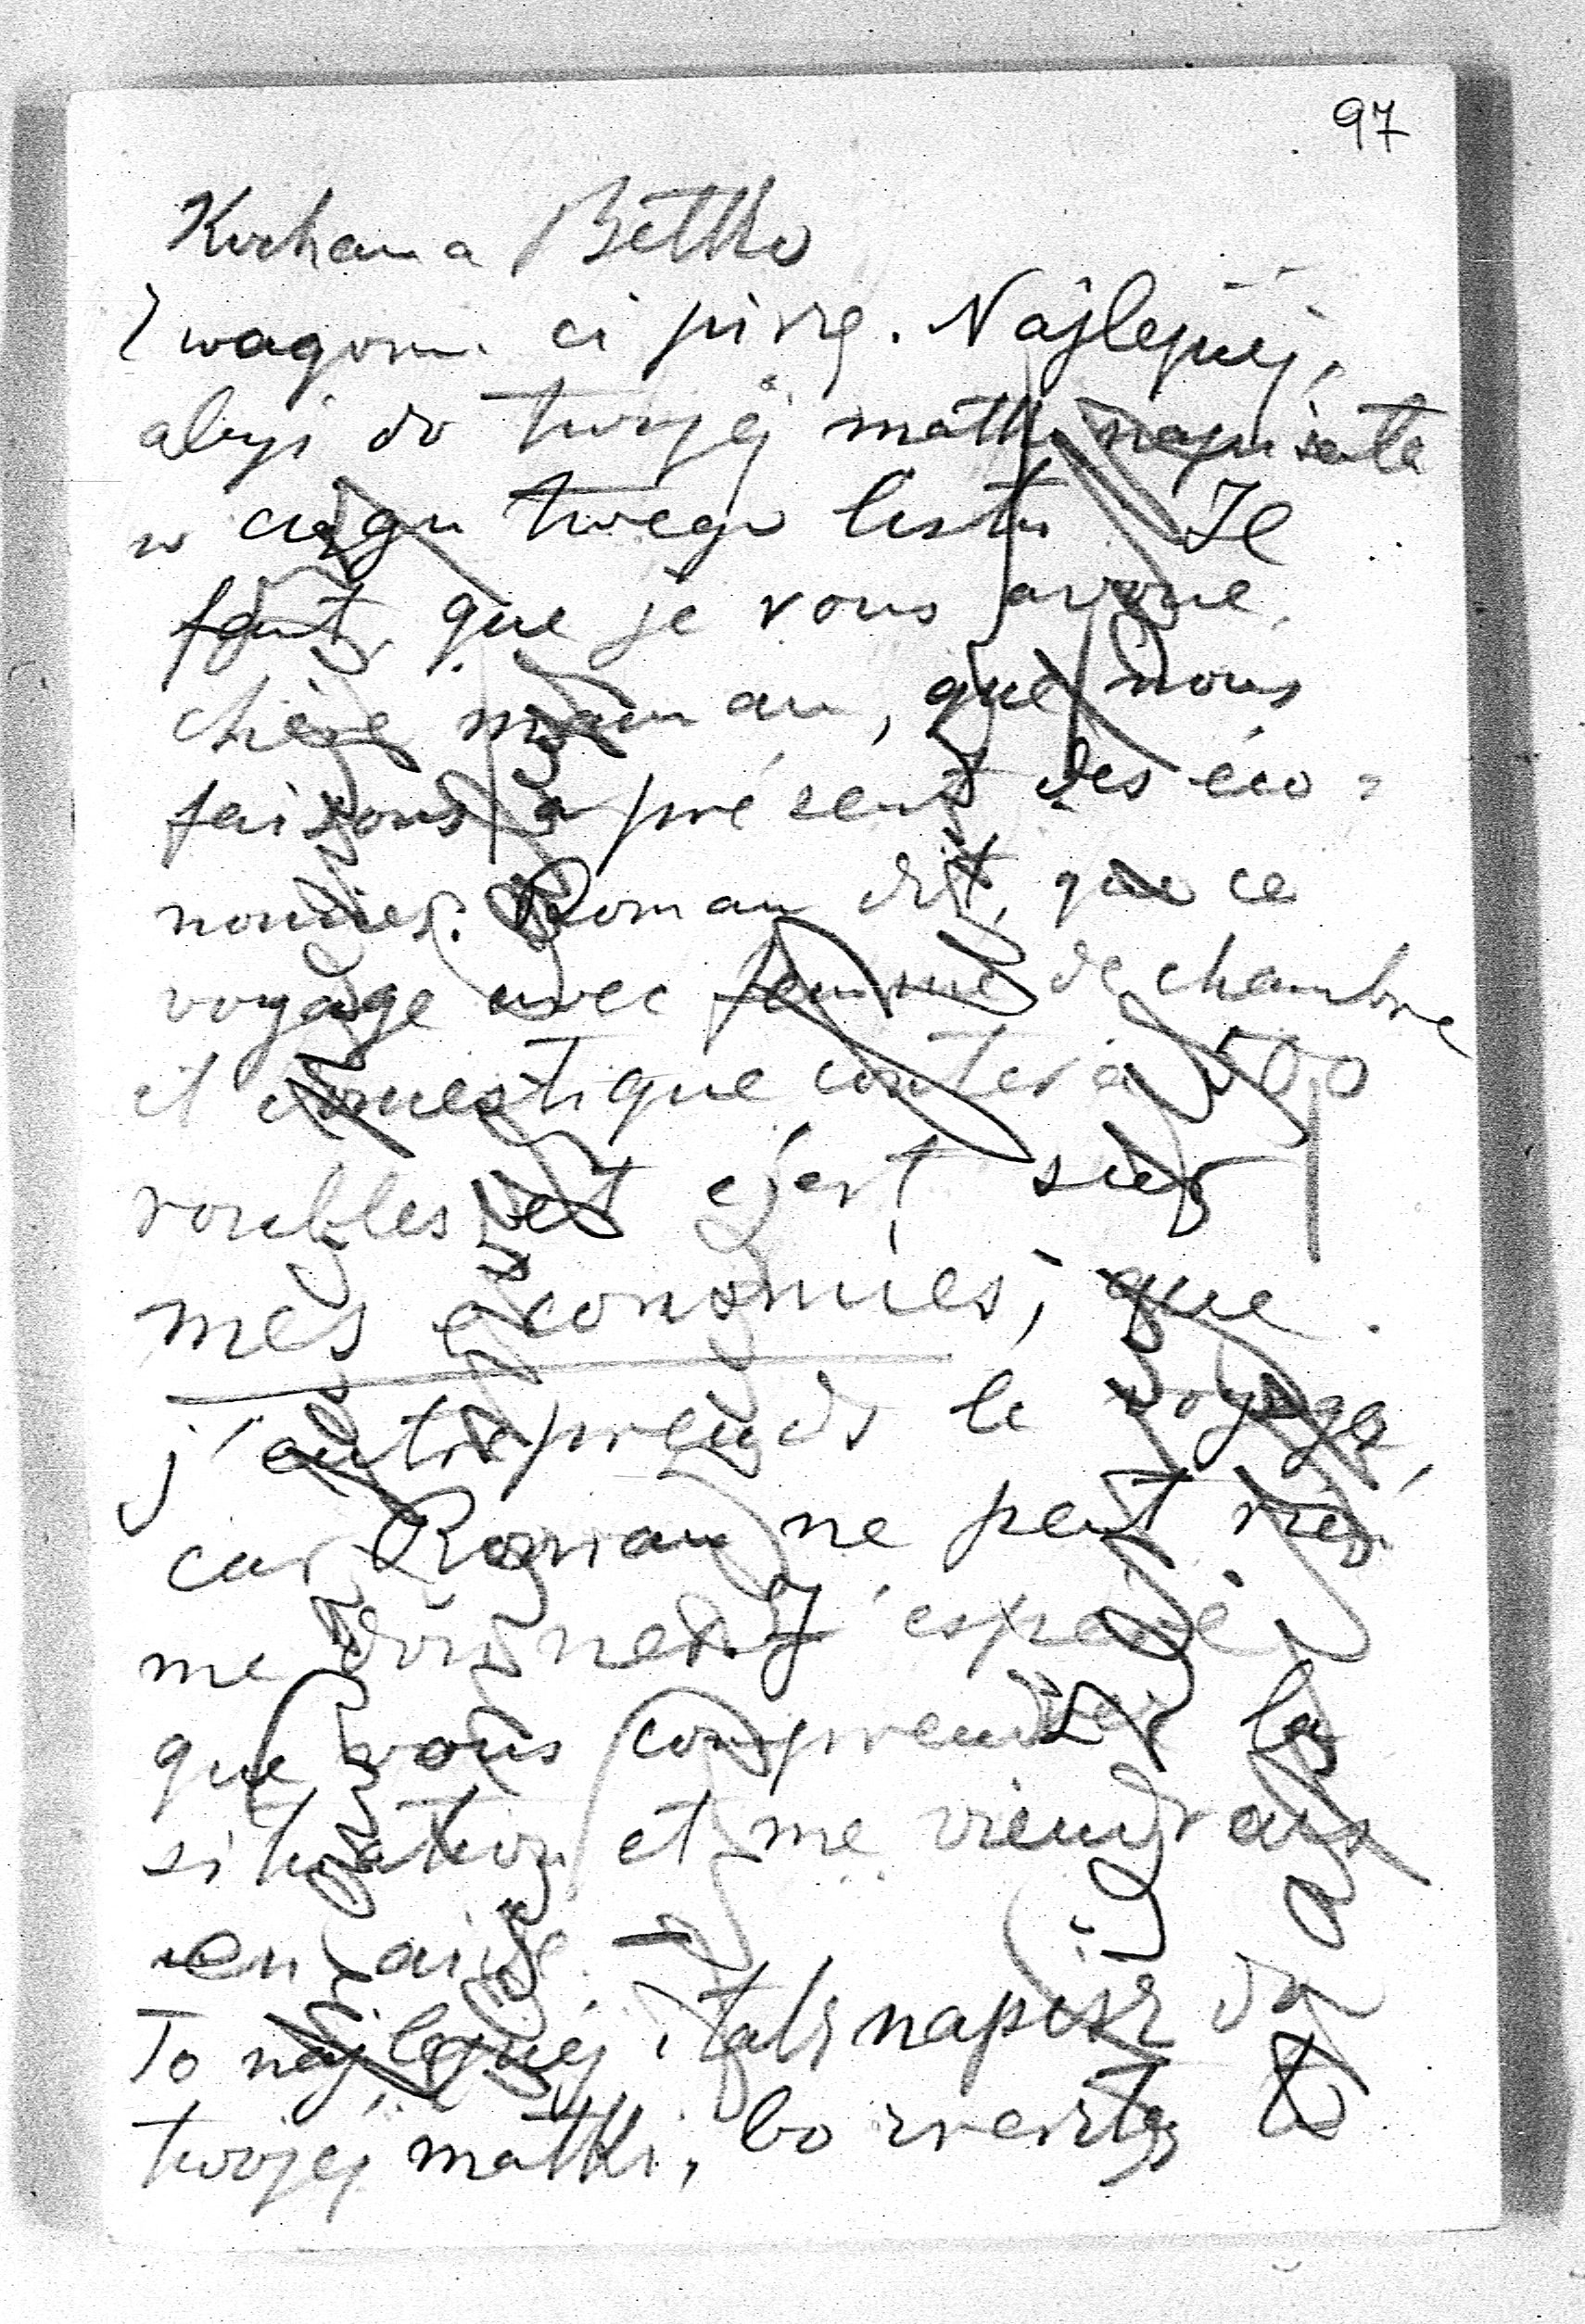 97
Kochana Bettko
Z wagonu ci piszę. Najlepiej,
abyś do twojej matki napisała
w ciągu twego listu Il
faut, que je vous avoue,
chère maman, que nous
faisons à présent des éco=
nomies. Roman dit, que ce
voyage avec femme de chambre
et domestique coutera
roubles et c'est sur
mes économies, que
j'entreprends le voyage,
car Roman ne peut rien
me donner. J'espère
que vous comprendrez la
situation et me viendrais
en aide. —
To najlepiej, tak napisz do
twojej matki, bo zresztą to